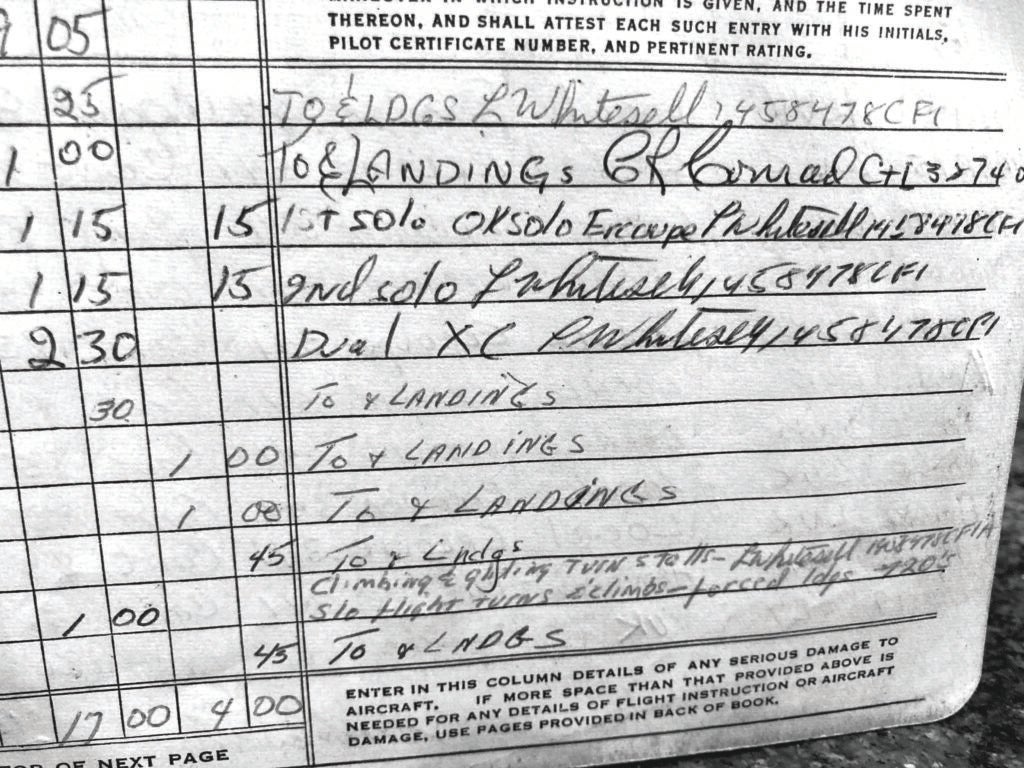 MANEUVER IN WHICH INSTRUCTION IS GIVEN, AND THE TIME SPENT
THEREON, AND SHALL ATTEST EACH SUCH ENTRY WITH HIS INITIALS,
PILOT CERTIFICATE NUMBER, AND PERTINENT RATING.
05
25 TO & LDGS L Whitesell 1458478CFI
1 00 TO & LANDINGS Conrad
1 15 15 1st solo OK solo Ercoupe L Whitesell 1458478CFI
1 15 15 2nd solo L Whitesell 1458478CFI
2 30 Dual XC L Whitesell 1458478CFI
30 To & LANDINGS
1 00 To & LANDINGS
1 00 To & LANDINGS
45 To & Lndgs
Climbing & gliding TURNS stalls - L Whitesell 1458478CFIA
1 00 Slo flight turns climbs - forced ldgs 720's
45 To & LNDGS
17 00 4 00
ENTER IN THIS COLUMN DETAILS OF ANY SERIOUS DAMAGE TO
AIRCRAFT. IF MORE SPACE THAN THAT PROVIDED ABOVE IS
NEEDED FOR ANY DETAILS OF FLIGHT INSTRUCTION OR AIRCRAFT
DAMAGE, USE PAGES PROVIDED IN BACK OF BOOK.
OF NEXT PAGE